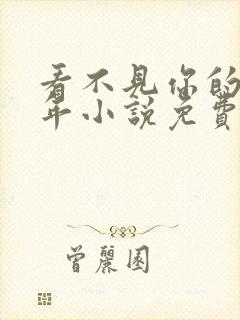 看不見你的
年小說免費
曾麗園